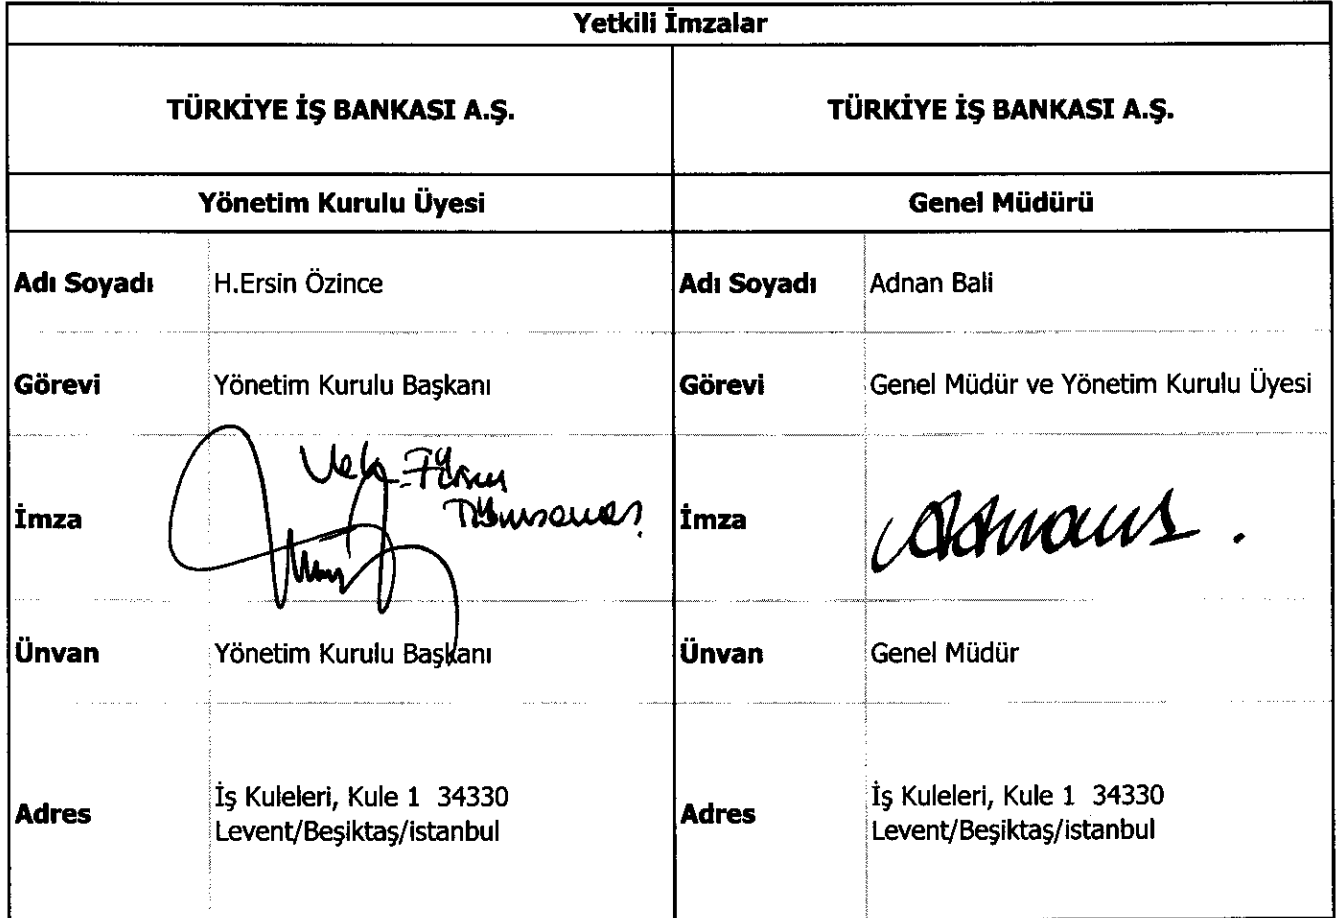 Yetkili İmzalar
TÜRKİYE İŞ BANKASI A.Ş.
TÜRKİYE İŞ BANKASI A.Ş.
Yönetim Kurulu Üyesi
Genel Müdürü
Adı Soyadı H.Ersin Özince
Adı Soyadı Adnan Bali
Görevi Yönetim Kurulu Başkanı
Görevi Genel Müdür ve Yönetim Kurulu Üyesi
İmza
İmza
Ünvan Yönetim Kurulu Başkanı
Ünvan Genel Müdür
Adres İş Kuleleri, Kule 1 34330
Levent/Beşiktaş/istanbul
Adres İş Kuleleri, Kule 1 34330
Levent/Beşiktaş/istanbul